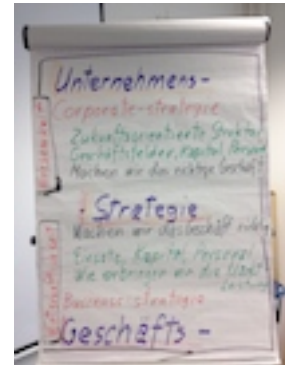 Unternehmens-
Corporate-strategie
Zukunftsorientierte Struktur
Geschäftsfelder, Kapital, Person
Machen wir das richtige Geschäft
Strategie
Machen wir das Geschäft richtig
Einsatz, Kapital, Personal
Wie erbringen wir die
Leistung
Business-strategie
Geschäfts-